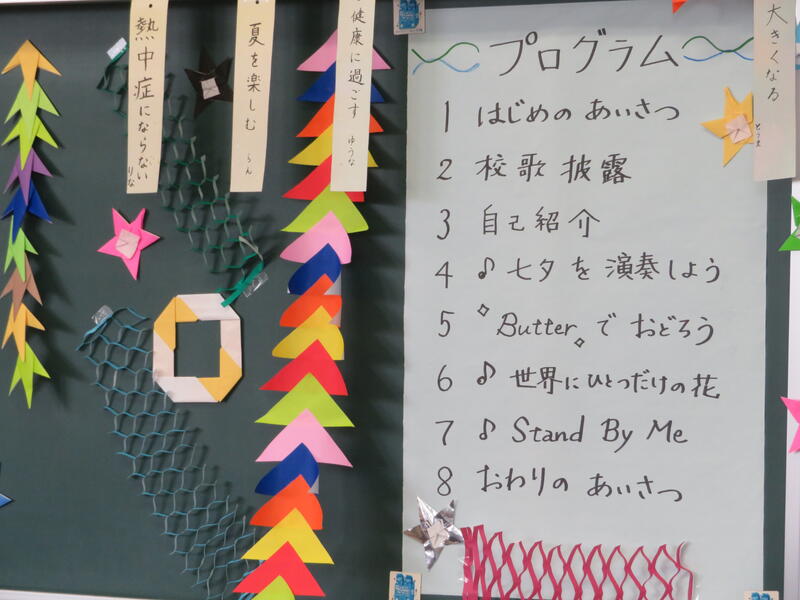 熱中症にならない
りな
夏を楽しむ
らん
健康に過ごす
ゆうな
プログラム
1 はじめの あいさつ
2 校歌披露
3 自己紹介
4 ♪七夕を演奏しよう
5 "Butter"で おどろう
6 ♪世界にひとつだけの花
7 ♪ Stand By Me
8 おわりの あいさつ
大きくなる